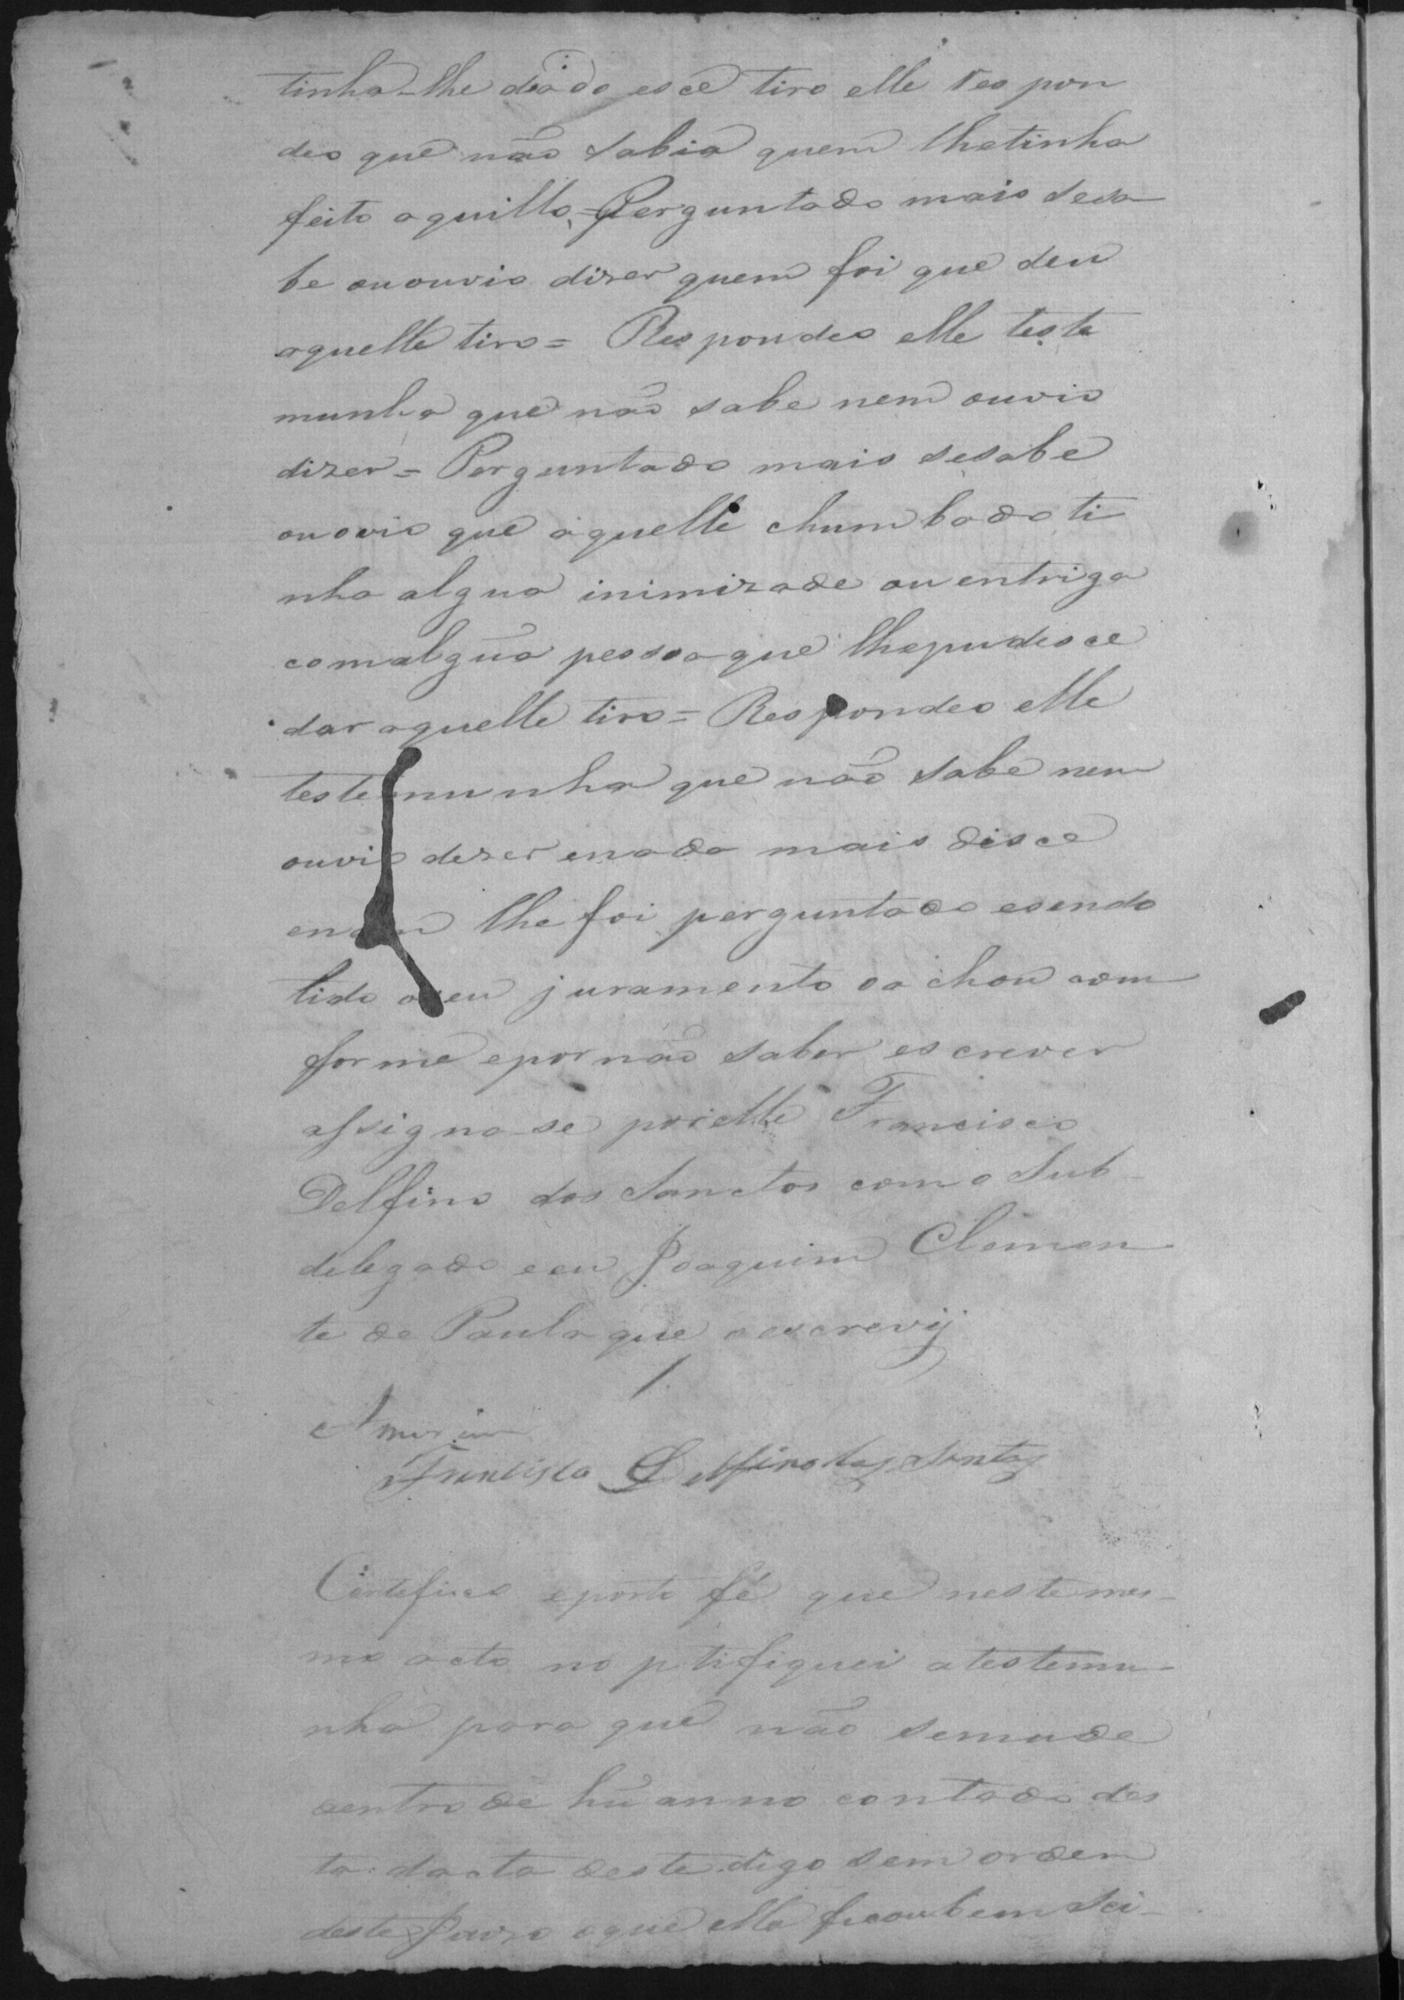 tinha-lhe dado esce tiro elle respon
deo que não sabia quem lhetinha
feito aquillo = Perguntado mais sesa
be ououvio diser quem foi que deu
aquelle tiro = Respondeo elle teste
munha que não sabe nem ouvio
dizer = Perguntado mais sesabe
ouovio que aquelle chumbado ti
nha algua inimizade ou entriga
comalgũa pessoa que lhepudesce
dar aquelle tiro = Respondeo elle
testemunha que não sabe nem
ouvio dezer enada mais disce
enem lhe foi perguntado esendo
lido oseu juramento oachou com
forme epornão saber escrever
assigna-se porelle Francisco
Delfino dos Sanctos com o Sub-
delegado eeu Joaquim Clemen
te de Paula que o escrevij
Amorim
Francisco Delfino dos Santos
Certefico eporto fé que nestemes-
mo acto noptifiquei atestemu-
nha para que não semude
dentro de hũ anno contado des
ta dacta deste digo sem ordem
deste Juizo oque ella ficoubem sci-